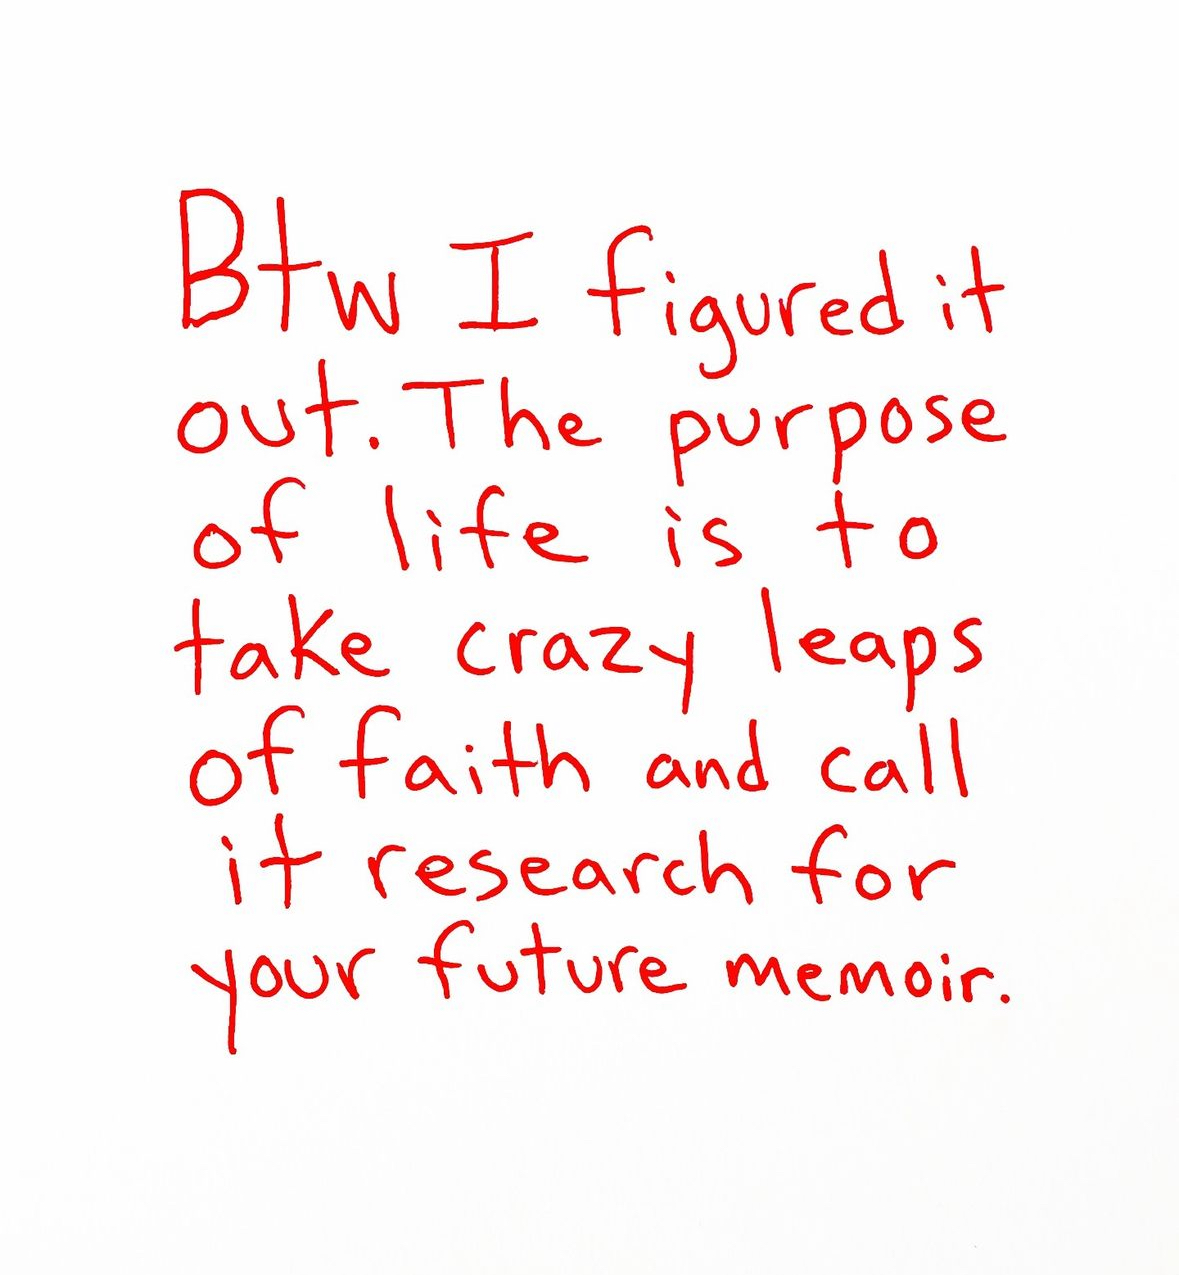 Btw I figured it
out. The purpose
of life is to
take crazy leaps
of faith and call
it research for
your future memoir.